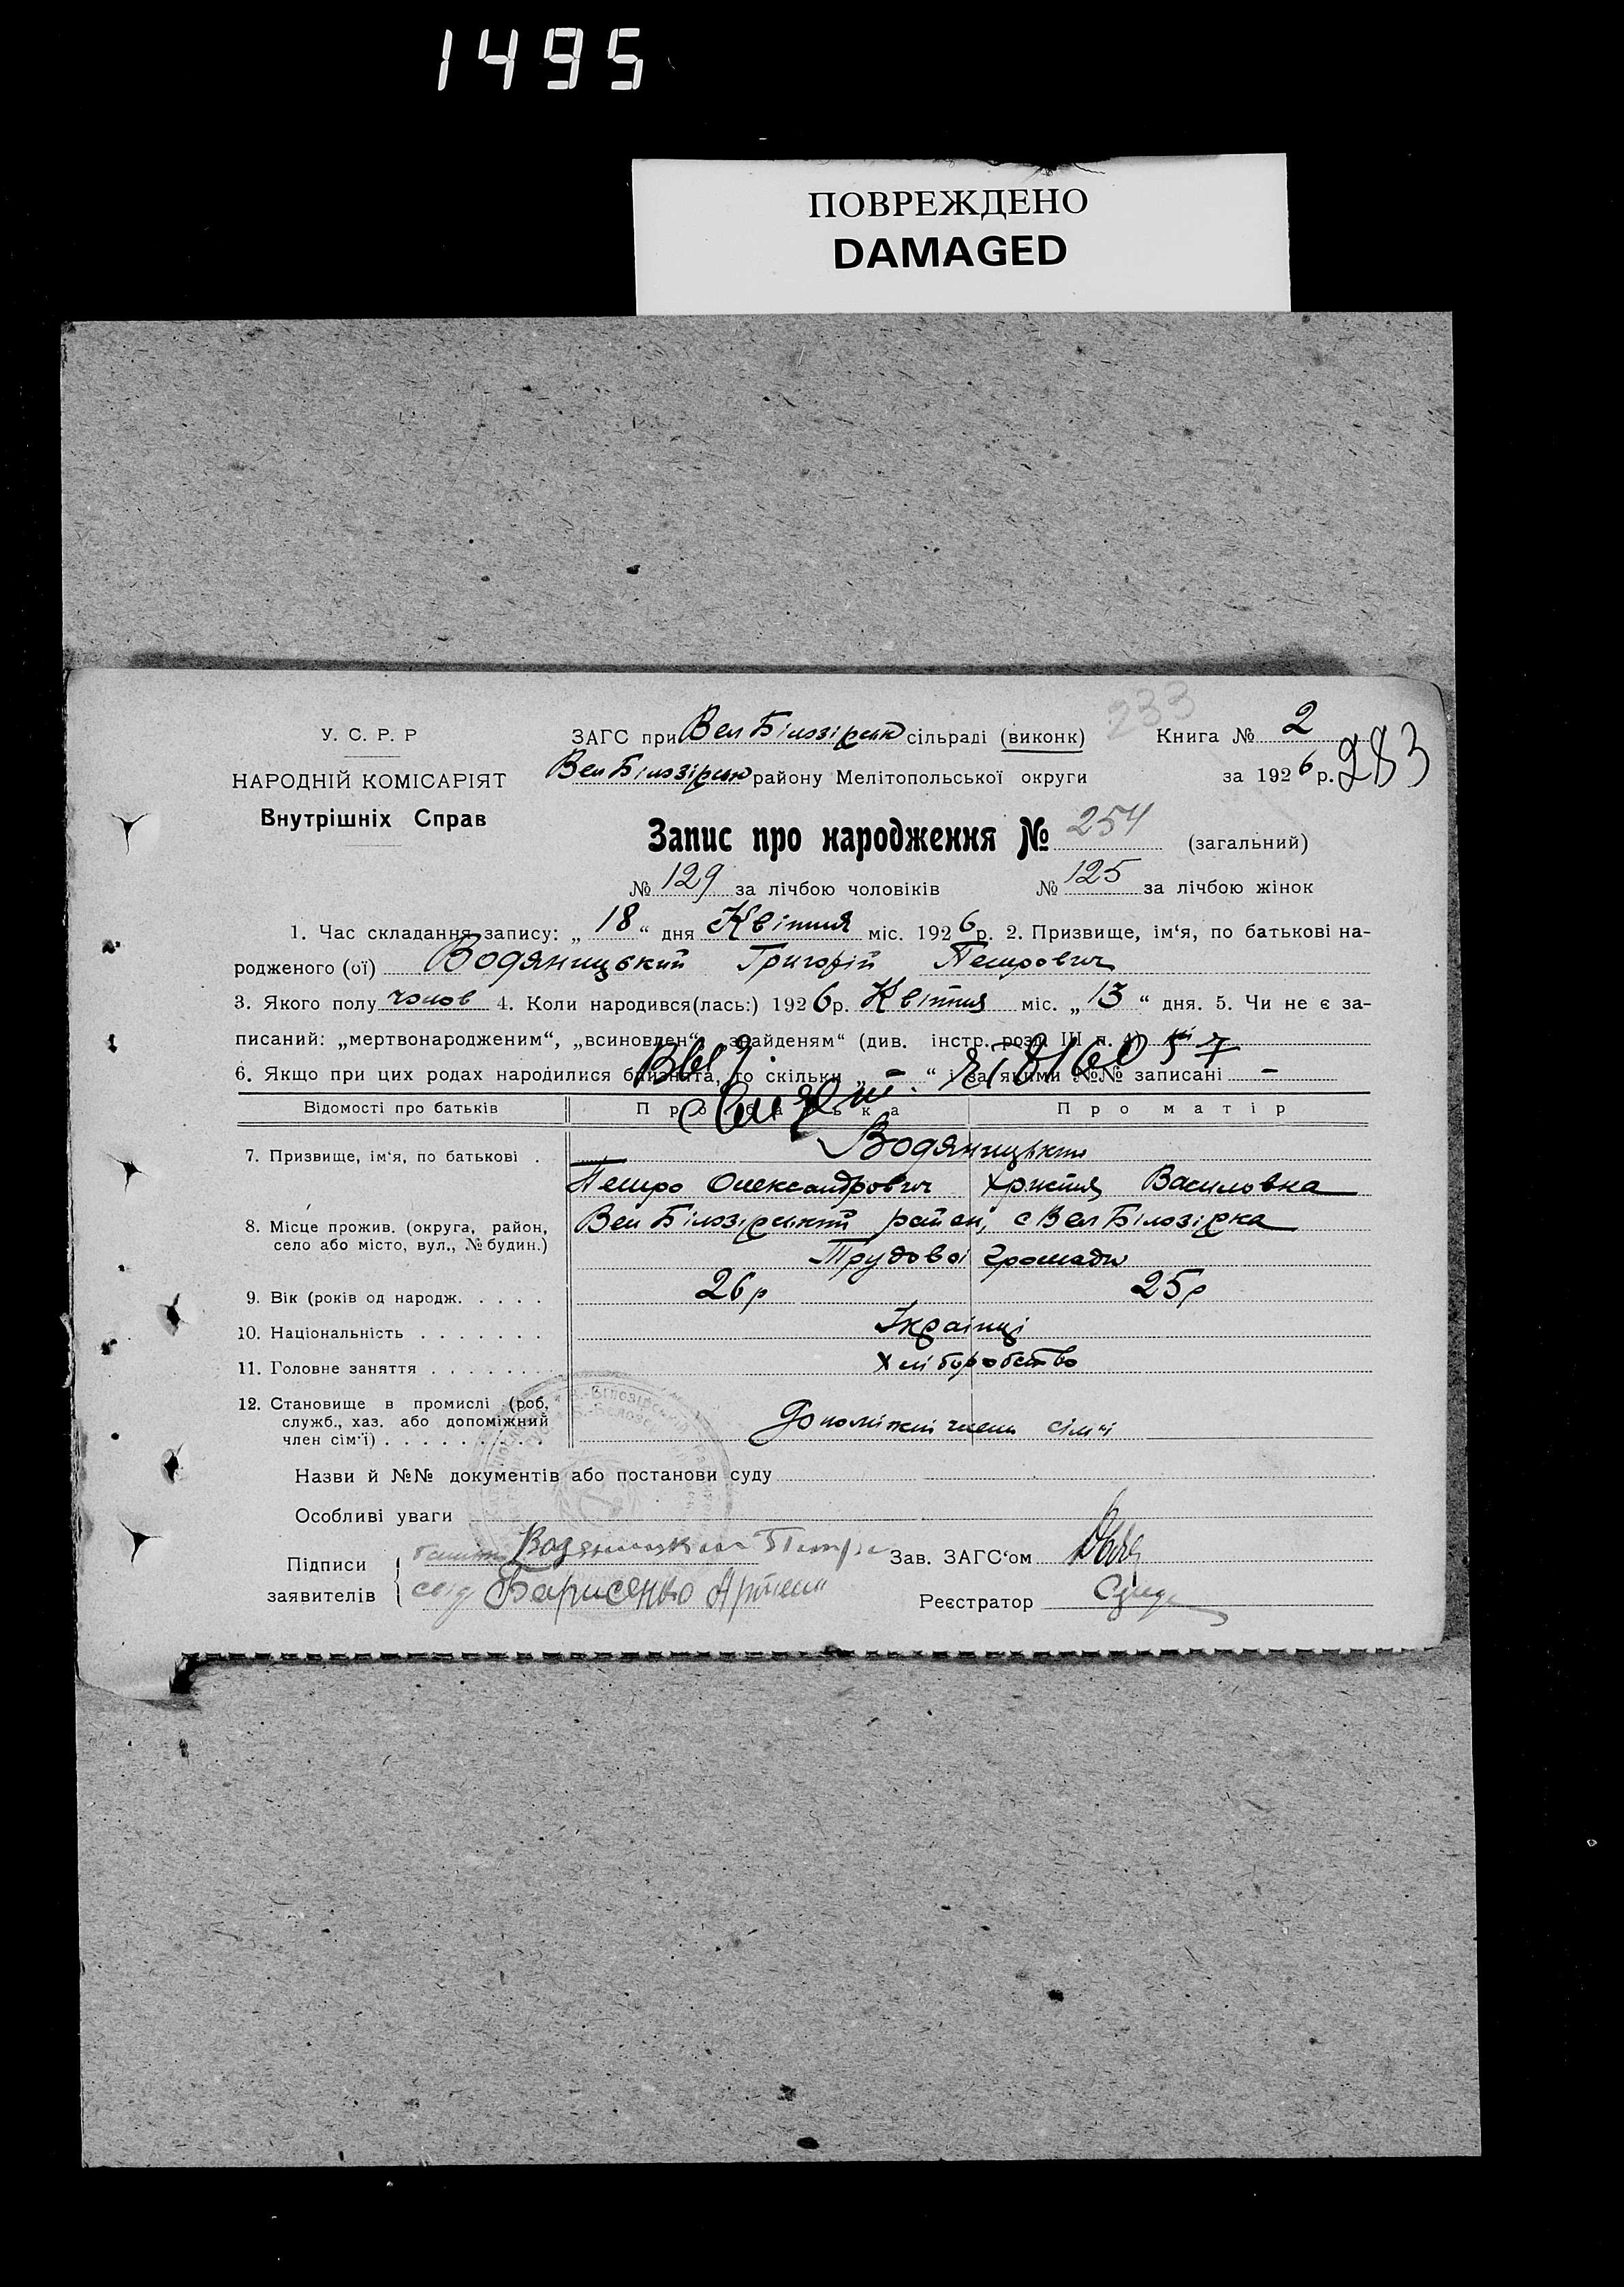 1495
ПОВРЕЖДЕНО
DAMAGED
233
У. С. Р. Р
НАРОДНІЙ КОМІСАРІЯТ
Внутрішніх Справ
ЗАГС при Вел Білозірськ сільраді (виконк)
Книга № 2
Вел Білозірськ району Мелітопольської округи
за 1926 р. 283
Запис про народження № 254 (загальний)
№ 129 за лічбою чоловіків № 125 за лічбою жінок
1. Час складання запису: „18“ дня Квітня міс. 1926 р. 2. Призвище, ім‘я, по батькові на-
родженого (ої) Водяницький Григорій Петрович
3. Якого полу чолов 4. Коли народився(лась:) 1926 р. Квітня міс. „13“ дня. 5. Чи не є за-
писаний: „мертвонародженим“, „всиновлен“, „знайденям“ (див. інстр. розд. III п. 4)
6. Якщо при цих родах народилися близнята, то скільки „-“ і за якими №№ записані -
Відомості про батьків Про батька Про матір
7. Призвище, ім‘я, по батькові . Водяницьки
Петро Олександрович Христя Василовна
8. Місце прожив. (округа, район, село або місто, вул., № будин.) Вел Білозірський район, с Вел Білозірка
Трудової громади
9. Вік (років од народж. . . . . 26 р 25 р
10. Національність . . . . . . . Українці
11. Головне заняття . . . . . . . Хліборобство
12. Становище в промислі (роб,
служб., хаз. або допоміжний
член сім‘ї) . . . . . . . . . . Допоміжні члени сім‘ї
Назви й №№ документів або постанови суду
Особливі уваги
Підписи
заявителів
Водяницький Петро
свід Барисенко Артем
Зав. ЗАГС‘ом
Реєстратор